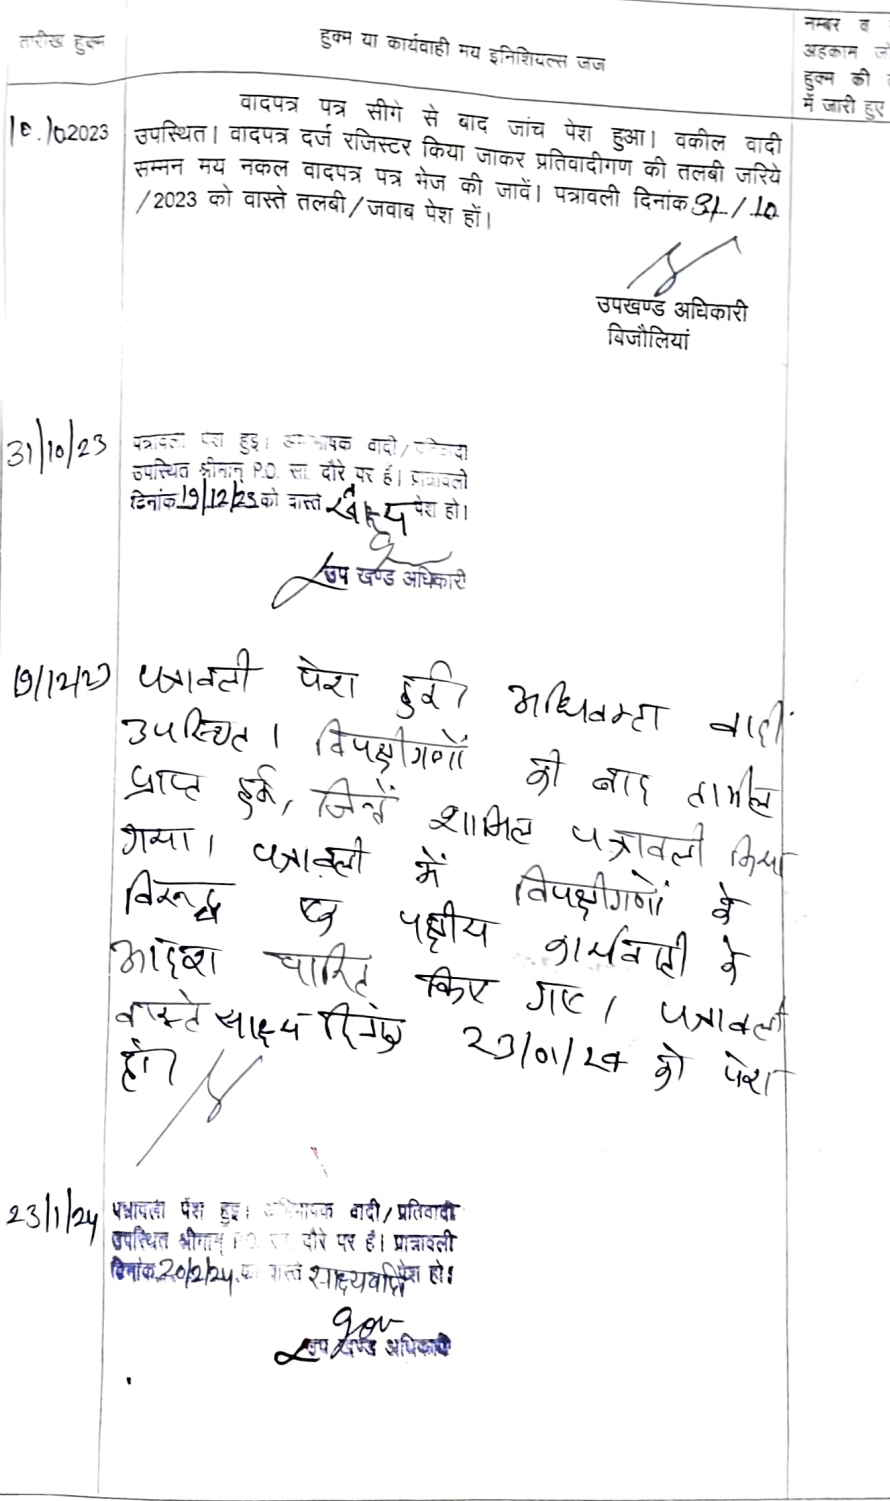 तारीख हुक्म
हुक्म या कार्यवाही मय इनिशियल्स जज
नम्बर व
अहकाम जो
हुक्म की
में जारी हुए
10.10.2023
वादपत्र पत्र सीगे से बाद जांच पेश हुआ। वकील वादी
उपस्थित। वादपत्र दर्ज रजिस्टर किया जाकर प्रतिवादीगण की तलबी जरिये
सम्मन मय नकल वादपत्र पत्र भेज की जावें। पत्रावली दिनांक 31/10
/2023 को वास्ते तलबी/जवाब पेश हों।
उपखण्ड अधिकारी
बिजौलियां
31/10/23
पत्रावली पेश हुई। अभिभाषक वादी/
उपस्थित श्रीमान् P.O. सा. दौरे पर हैं। प्रत्रावली
दिनांक 19/12/23 को वास्ते साक्ष्य पेश हो।
उप खण्ड अधिकारी
19/12/23
पत्रावली पेश हुई। अधिवक्ता वादी
उपस्थित। विपक्षीगणों की बाद तामील
प्राप्त हुई, जिन्हें शामिल पत्रावली किया
गया। पत्रावली में विपक्षीगणों के
विरूद्ध एक पक्षीय कार्यवाही के
आदेश पारित किए गए। पत्रावली
वास्ते साक्ष्य दिनांक 23/01/24 को पेश
हो।
23/1/24
पत्रावली पेश हुई। अभिभाषक वादी/प्रतिवादी
उपस्थित श्रीमान् P.O. सा. दौरे पर हैं। प्रात्रावली
दिनांक 20/2/24 को वास्ते साक्ष्यवादी पेश हो।
उप खण्ड अधिकारी